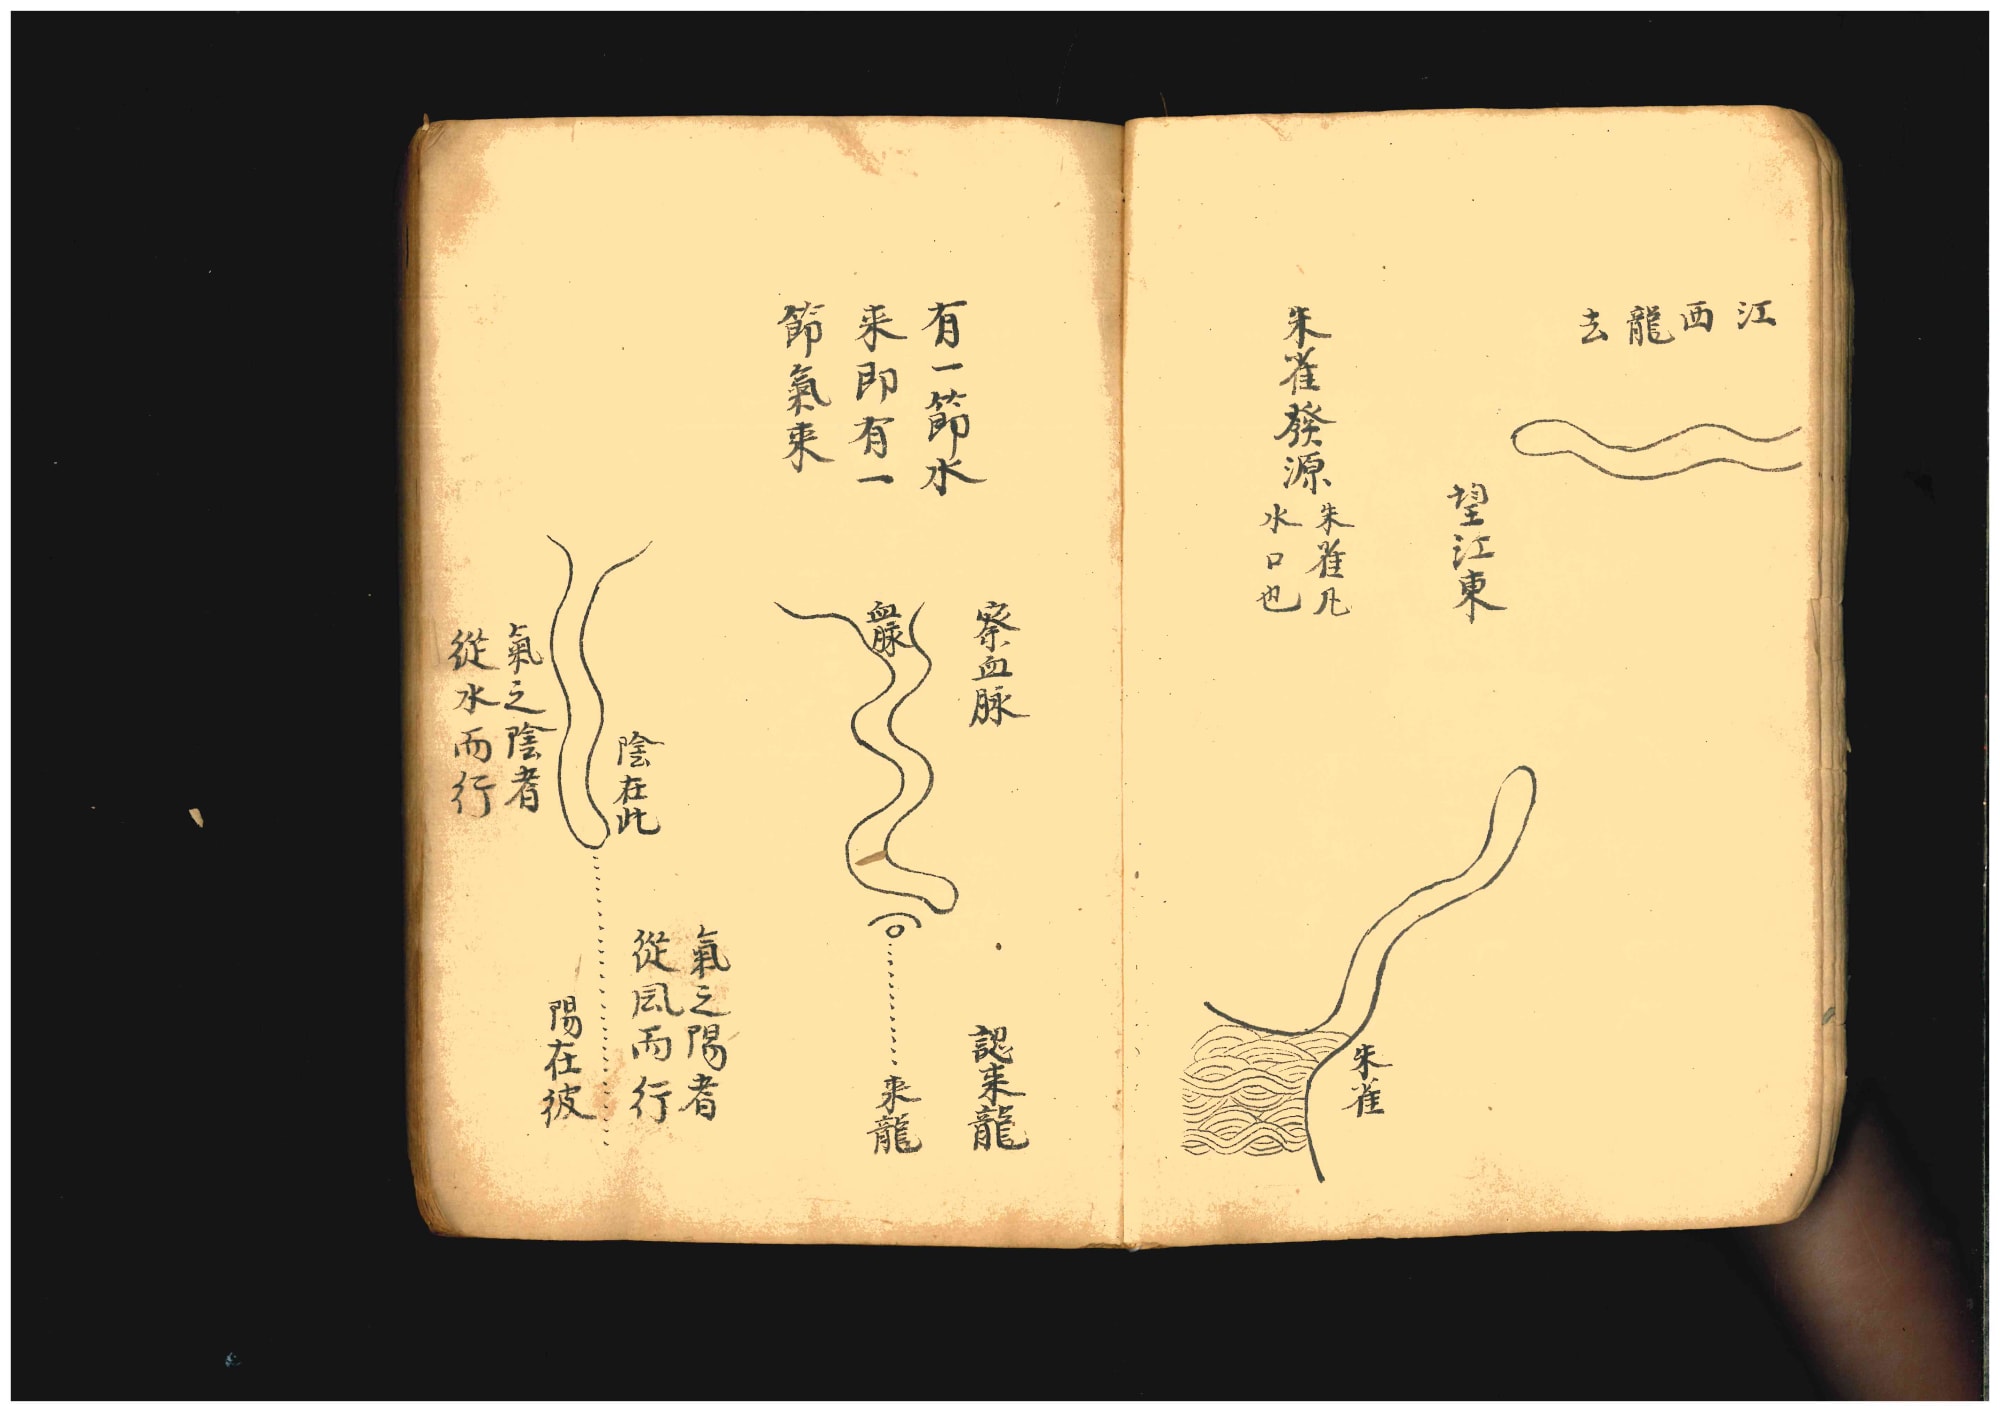 江西龍去
望江東
朱雀發源
朱雀凡
水口也
朱雀
察血脉
血脉
認来龍
来龍
有一節水
来即有一
節氣来
陰在此
氣之陰者
從水而行
氣之陽者
從風而行
陽在彼